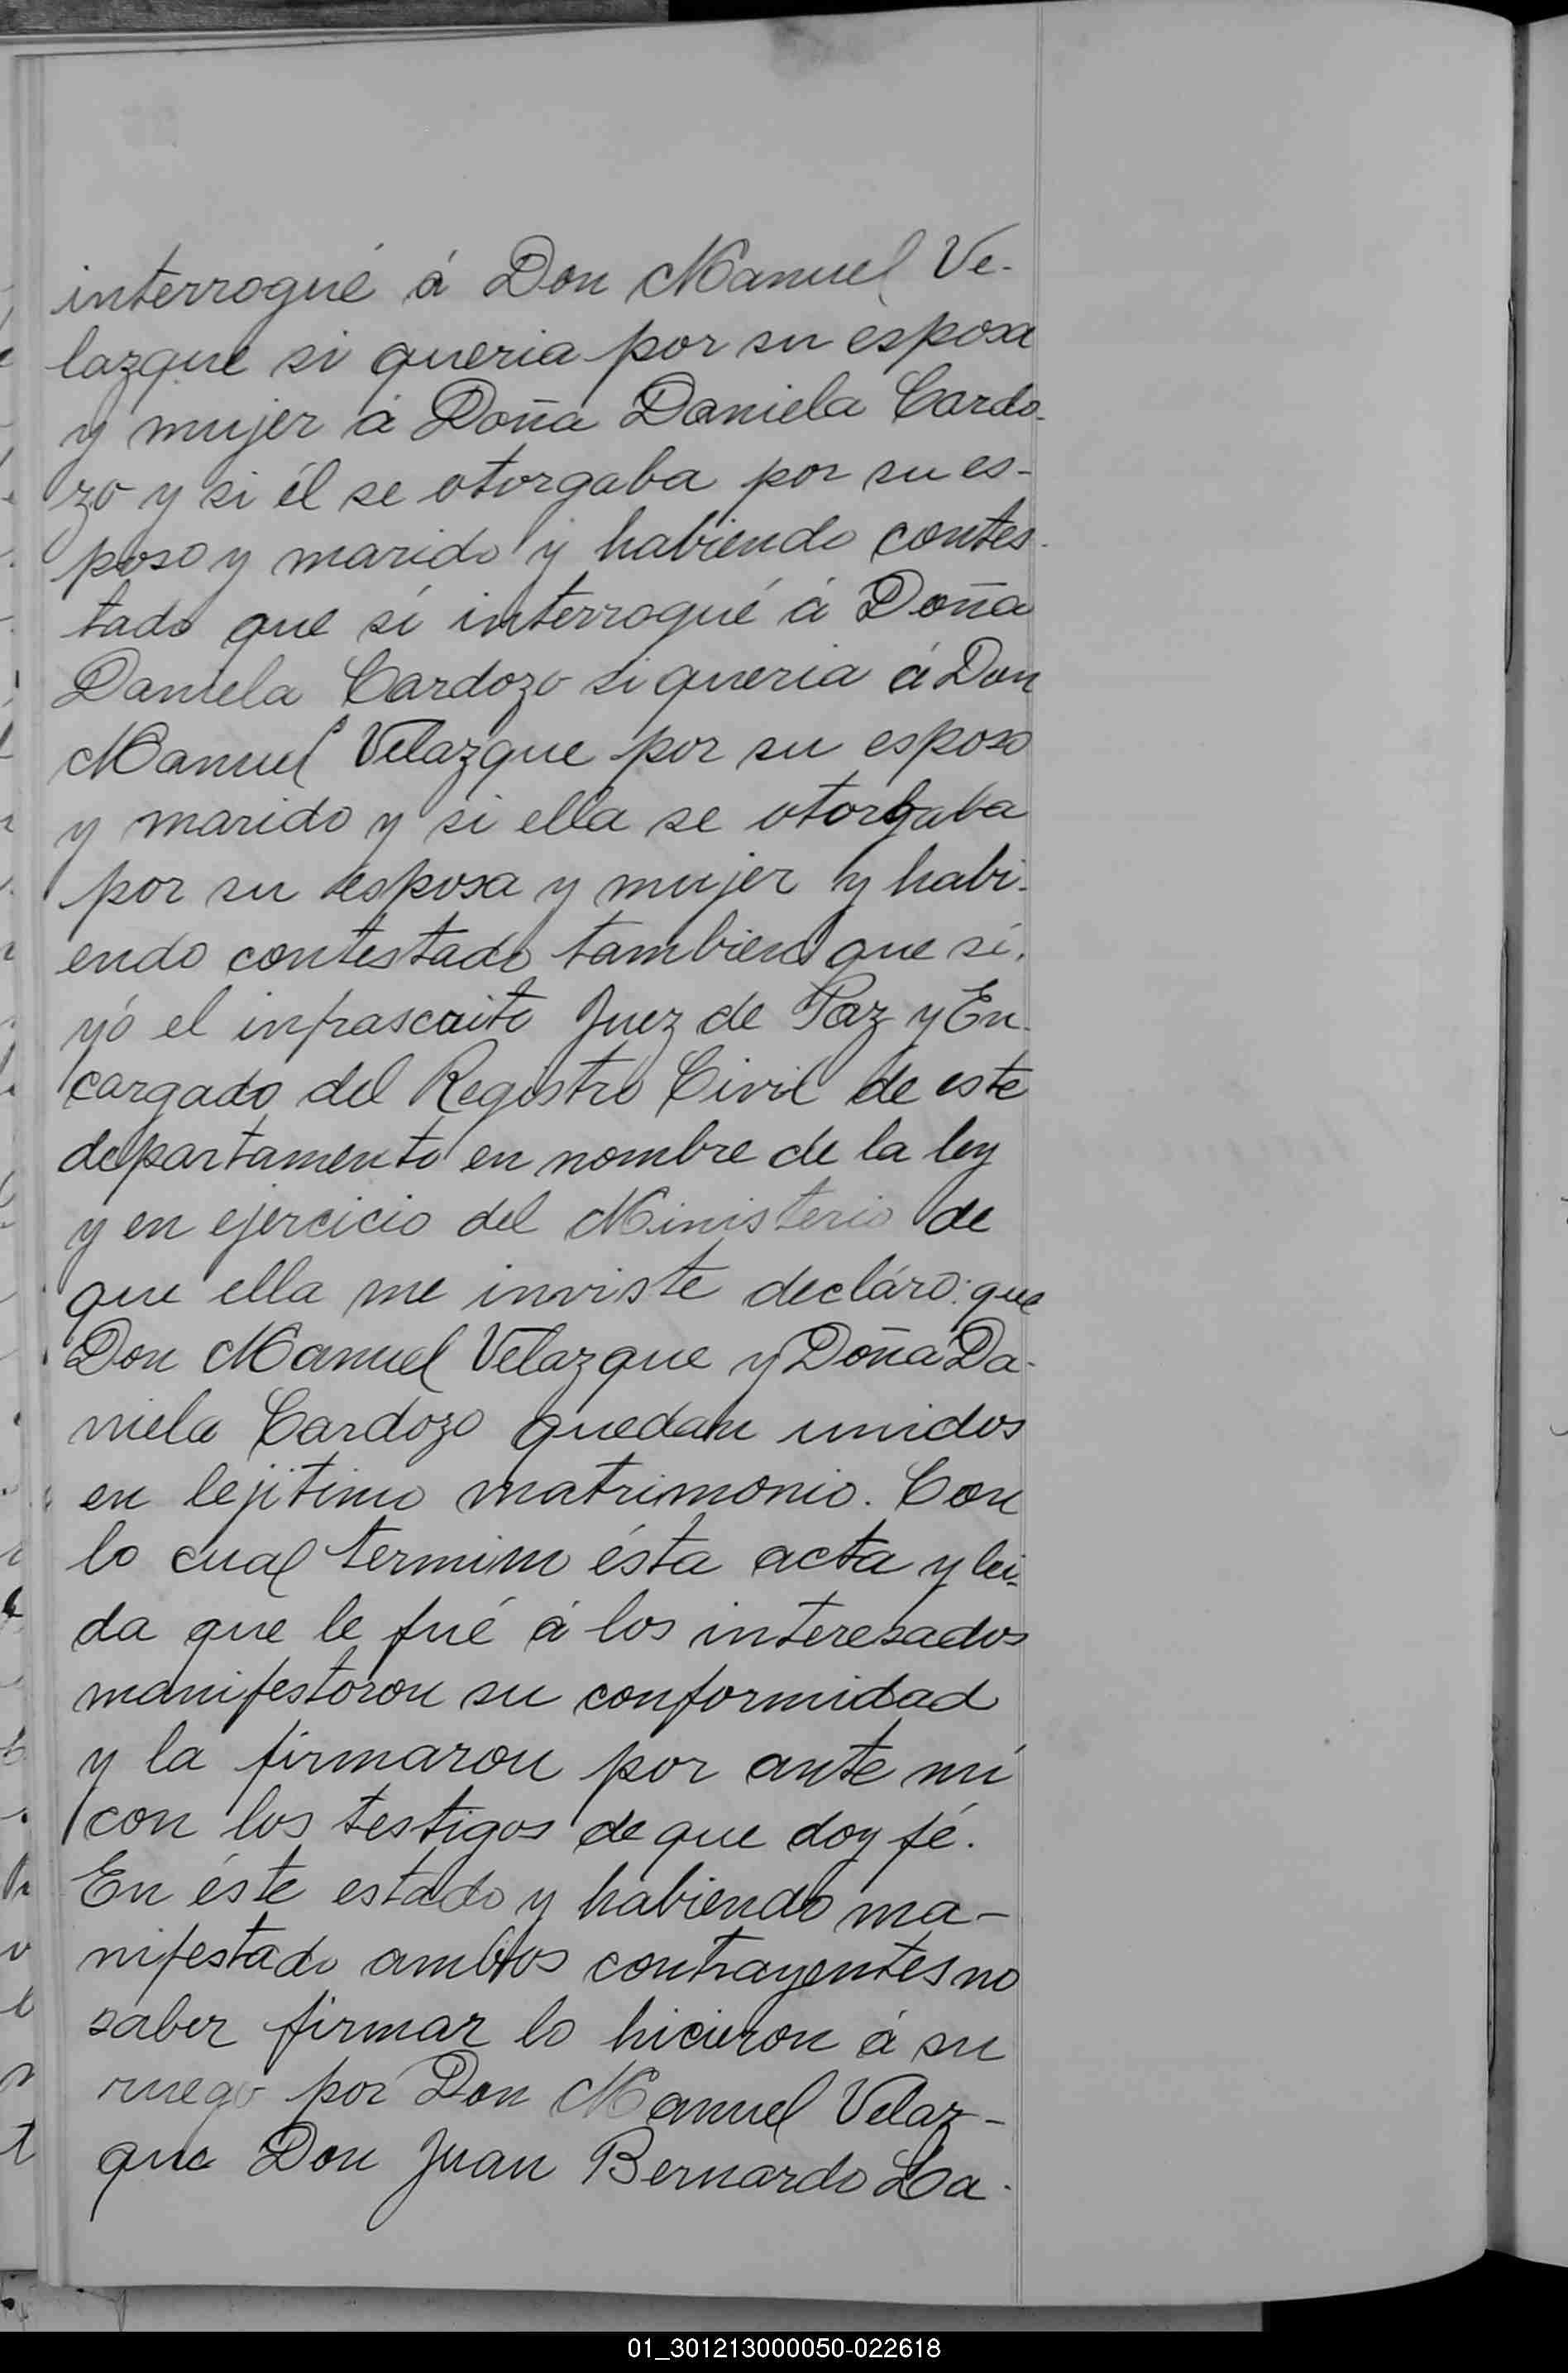 interrogué á Don Manuel Ve-
lazque si queria por su esposa
y mujer á Doña Daniela Cardo-
zo y si él se otorgaba por su es-
poso y marido y habiendo contes-
tado que sí interrogué á Doña
Daniela Cardozo si queria á Don
Manuel Velazque por su esposo
y marido y si ella se otorgaba
por su esposa y mujer y habi-
endo contestado tambien que sí.
yó el infrascrito Juez de Paz y En-
cargado del Registro Civil de este
departamento en nombre de la ley
y en ejercicio del Ministerio de
que ella me inviste decláro: que
Don Manuel Velazque y Doña Da-
niela Cardozo quedan unidos
en lejitimo matrimonio. Con
lo cual termino ésta acta y lei-
da que le fué á los interesados
manifestoron su conformidad
y la firmaron por ante mí
con los testigos de que doy fé.
En éste estado y habiendo ma-
nifestado ambos contrayentes no
saber firmar lo hicieron á su
ruego por Don Manuel Velaz-
que Don Juan Bernardo La-
01_301213000050-022618